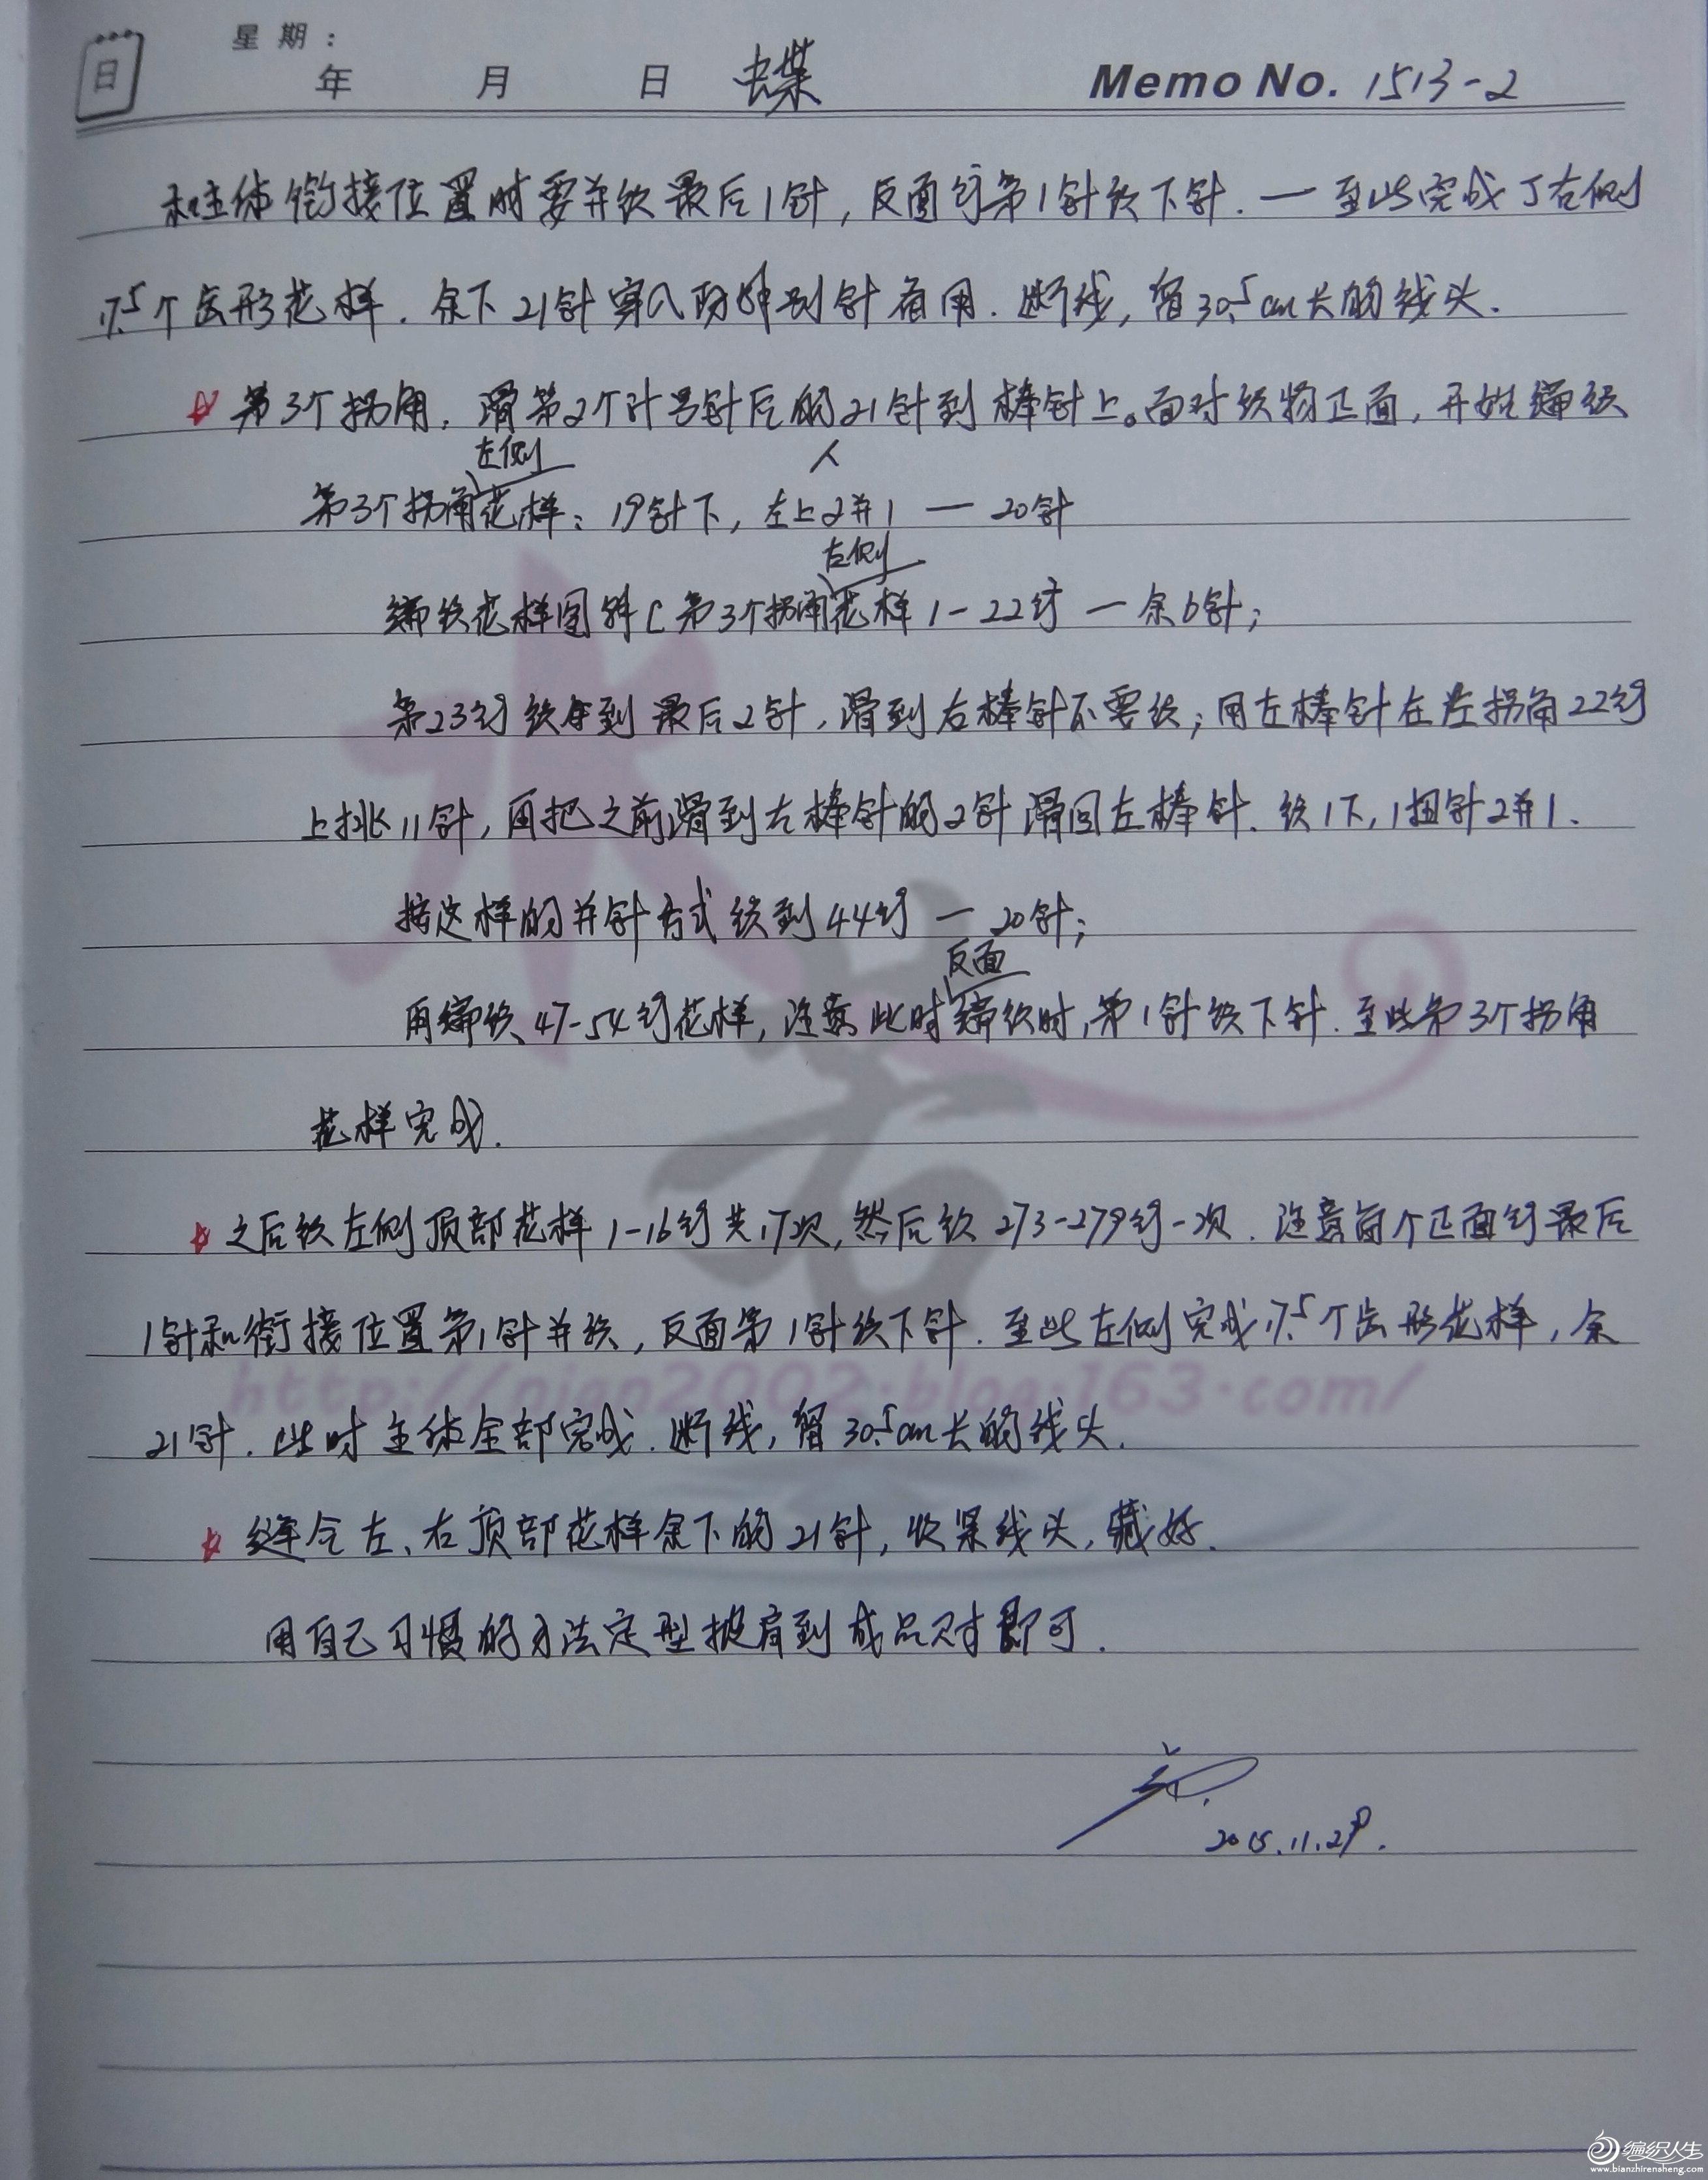 日 星期:
年 月 日 蝶 Memo No. 1513-2
和主体衔接位置时要并织最后1针,反面行第1针织下针.一至此完成了右侧
17.5个齿形花样.余下21针穿入防解别针备用.断线,留30.5cm长的线头.
☆第3个拐角.滑第2个计号针后的21针到棒针上。面对织物正面,开始编织
左侧 人
第3个拐角花样:19针下,左上2并1 — 20针
左侧
编织花样图解C第3个拐角花样1-22行 — 余6针;
第23行织到最后2针,滑到右棒针不要织;用左棒针在左拐角22行
上挑11针,再把之前滑到右棒针的2针滑回左棒针.织1下,1扭针2并1.
按这样的并针方式织到44行 — 20针;
反面
再编织47-54行花样,注意此时编织时,第1针织下针.至此第3个拐角
花样完成.
☆之后织左侧顶部花样1-16行共17次,然后织273-279行一次.注意每个正面行最后
1针和衔接位置第1针并织,反面第1针织下针.至此左侧完成17.5个齿形花样,余
21针.此时主体全部完成.断线,留30.5cm长的线头.
☆缝合左、右顶部花样余下的21针,收紧线头,藏好.
用自己习惯的方法定型披肩到成品尺寸即可.
2015.11.29.
水若
http://nian2002.blog.163.com/
编织人生
www.bianzhirensheng.com